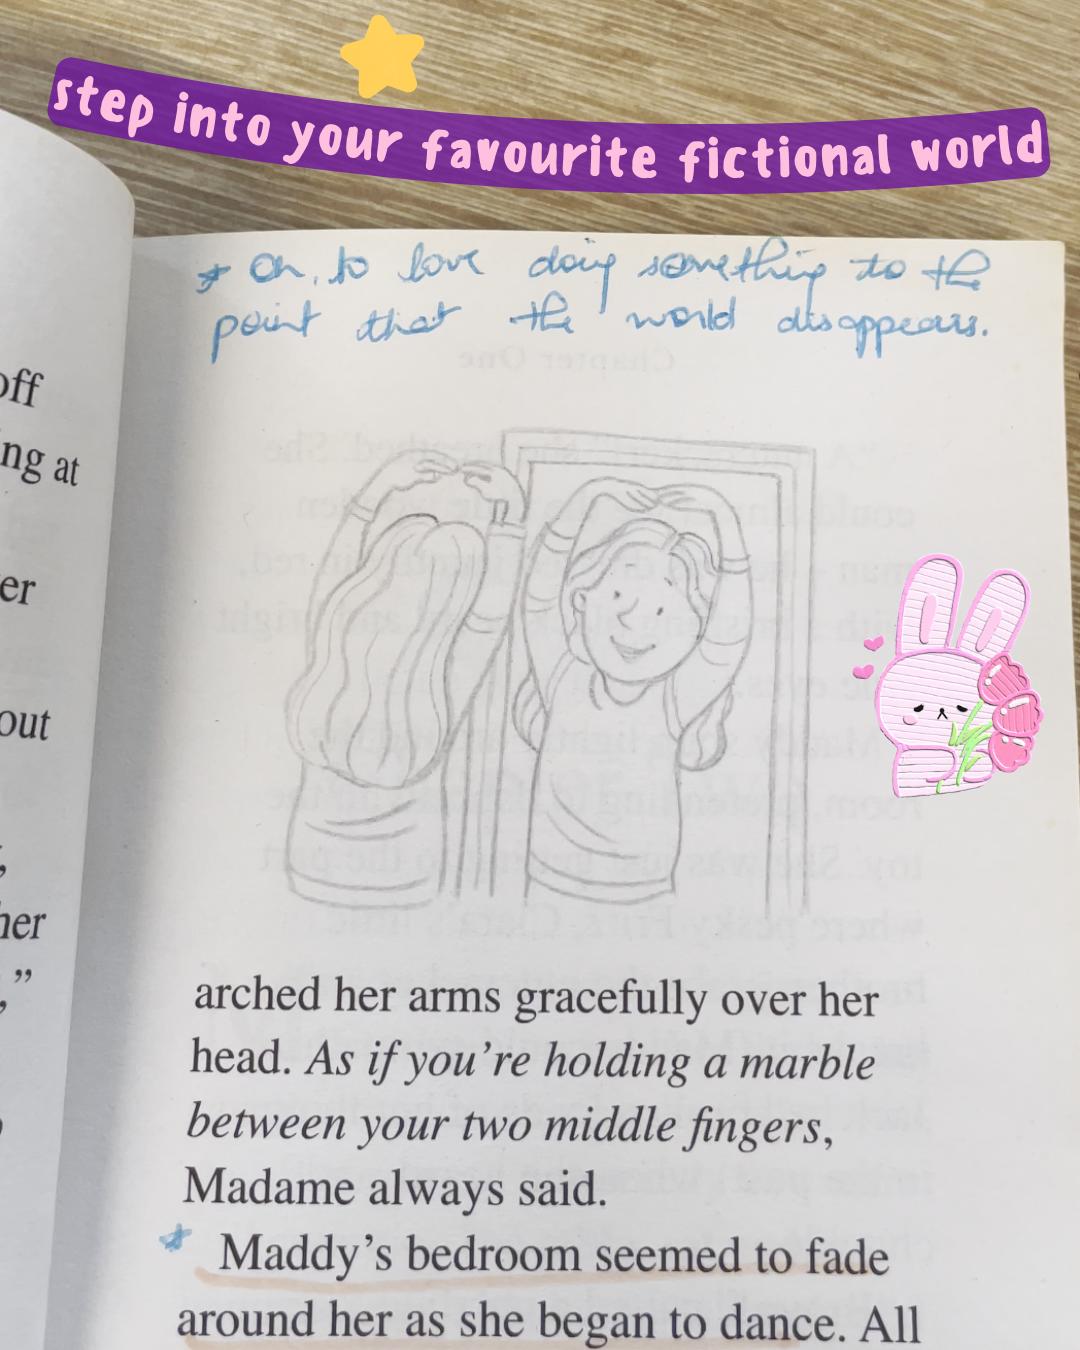 step into your favourite fictional world
* Oh, to love doing something to the
point that the world disappears.
off
ng at
er
out
,
her
,”
Chapter One
arched her arms gracefully over her
head. As if you’re holding a marble
between your two middle fingers,
Madame always said.
* Maddy’s bedroom seemed to fade
around her as she began to dance. All